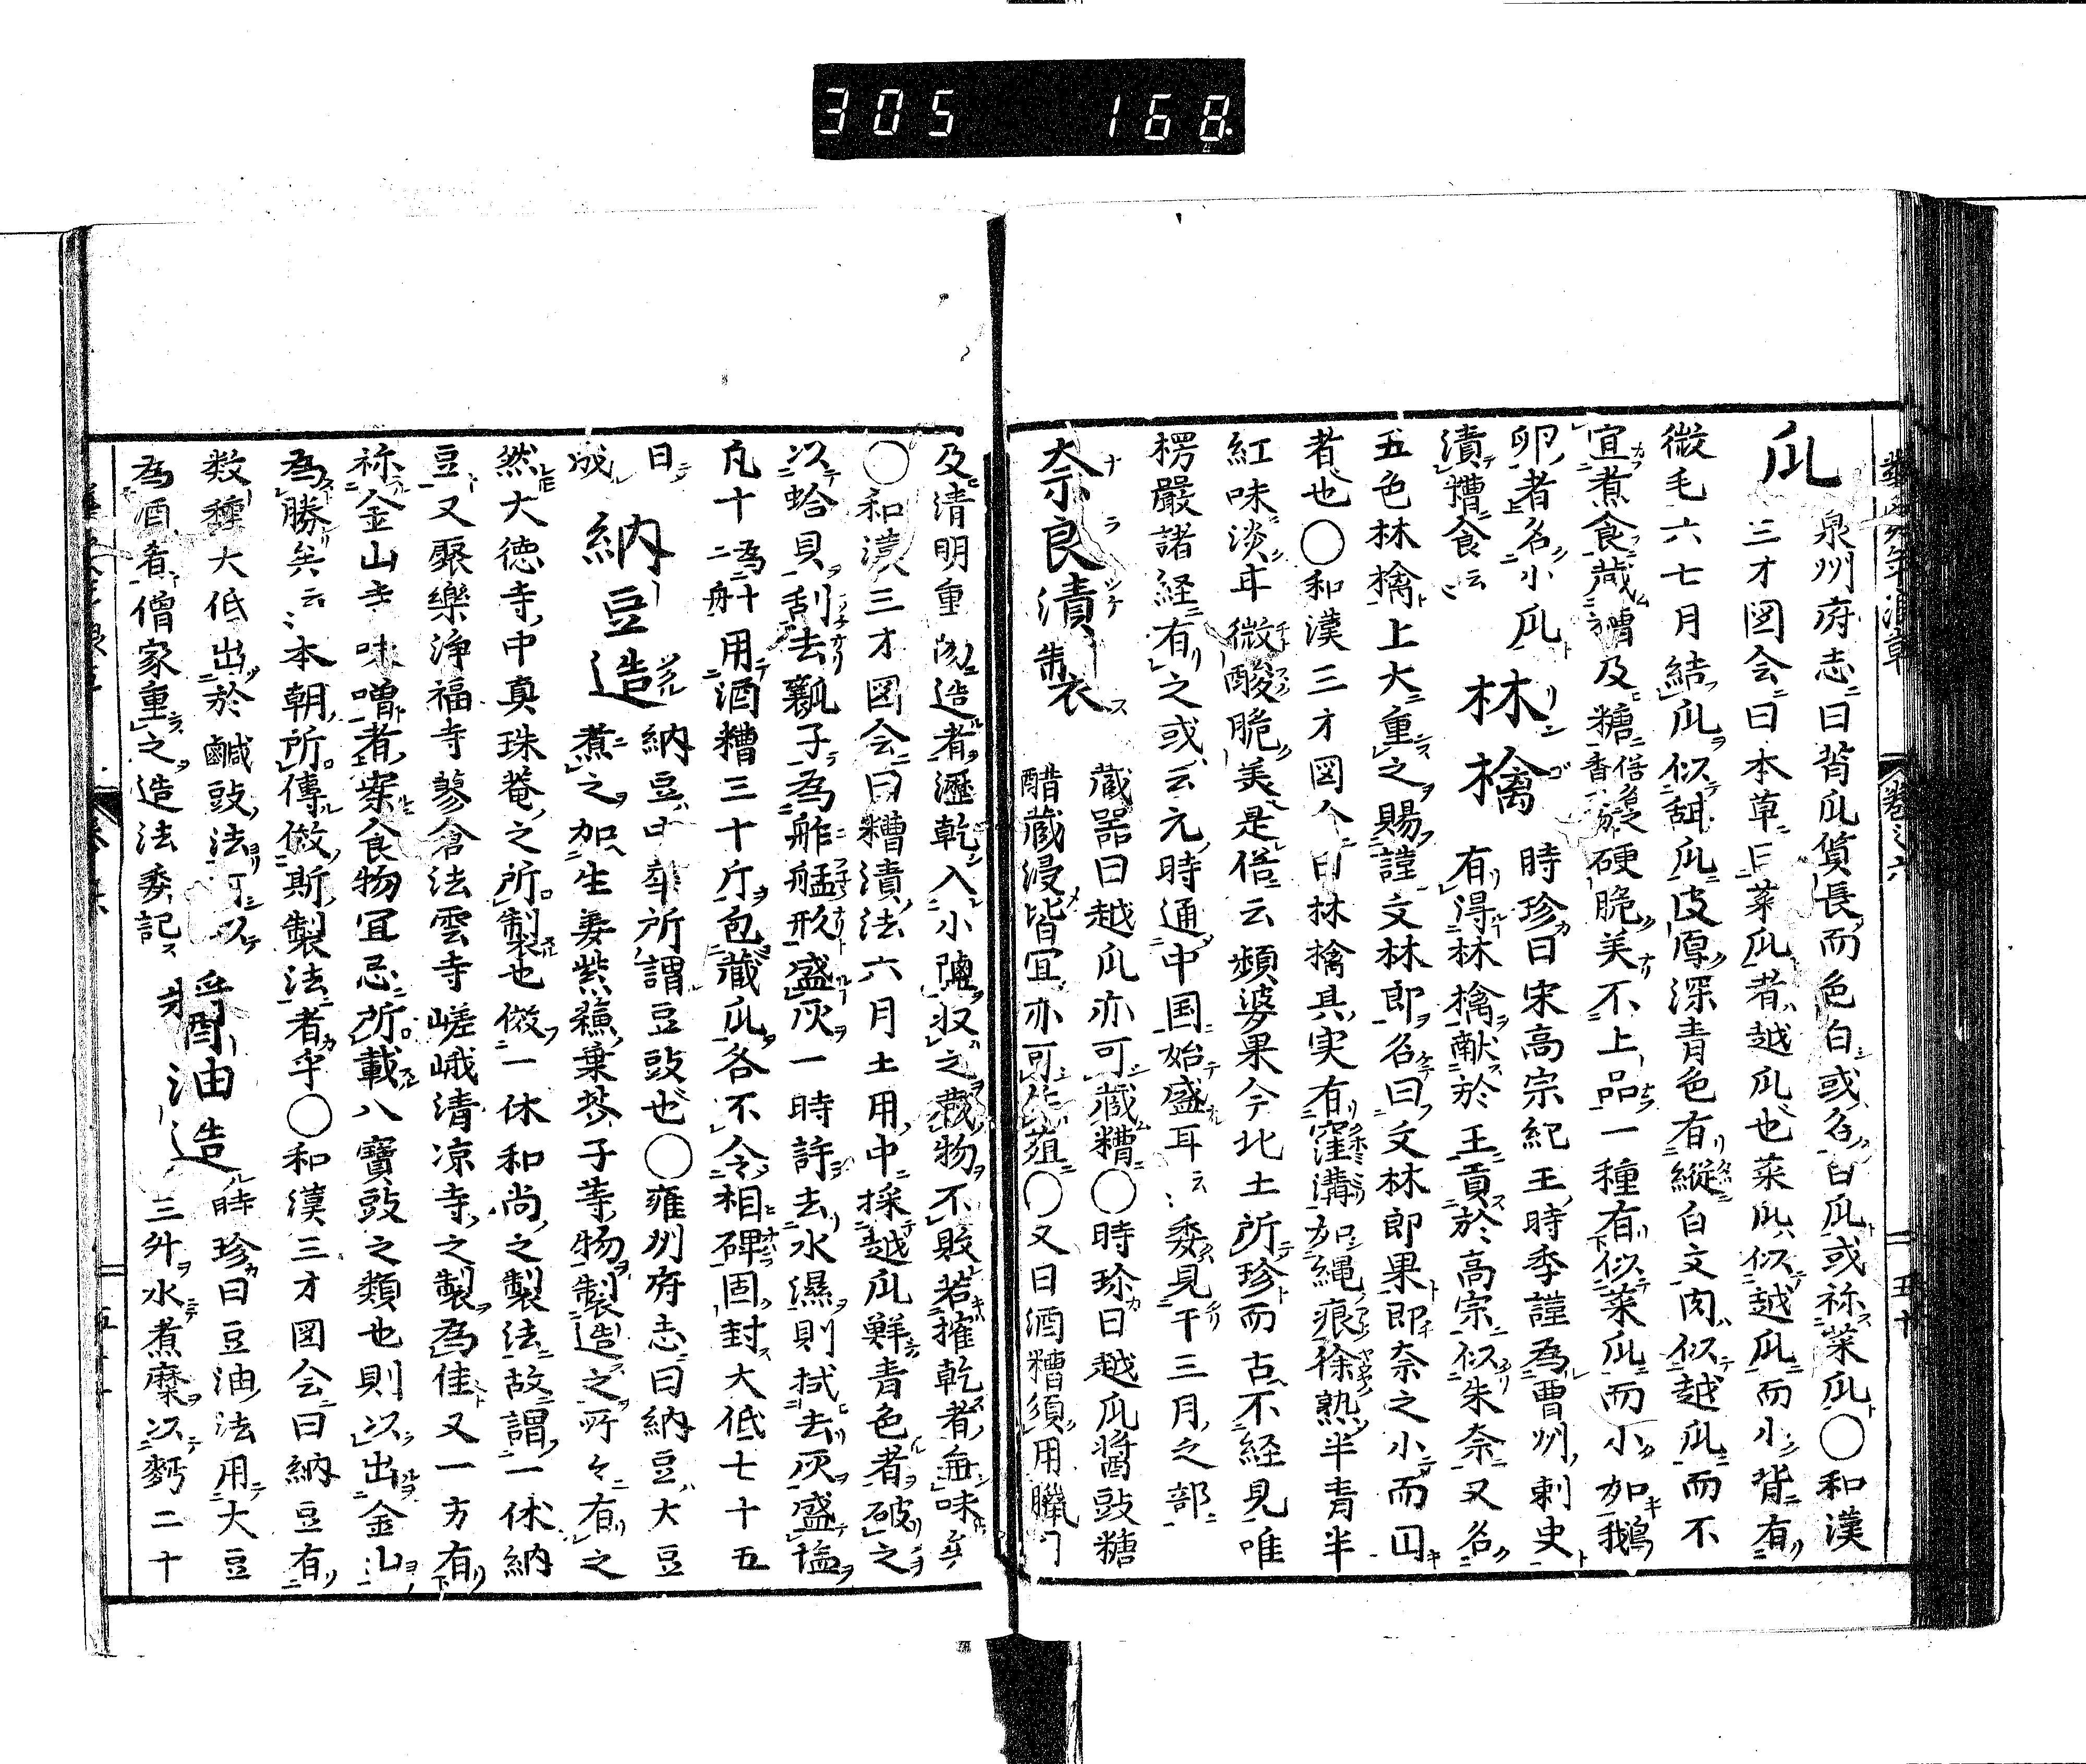 305 168
泉州府志曰背瓜質長而色白或名白瓜或称菜瓜○和漢
瓜 三才図会曰本草曰菜瓜者越瓜也菜瓜似越瓜而小背有
微毛六七月結瓜似甜瓜皮厚深青色有縦白文肉似越瓜而不
宜煮食蔵糟及糖 硬脆美不上品一種有似菜瓜而小如鵝
卵者名小瓜 時珍曰宋高宗紀王時李謹為曹州刺史
漬糟食云 林檎 有得林檎献於王貢於高宗似朱柰又名
五色林檎上大重之賜謹文林郎名曰文林郎果即柰之小而円
者也○和漢三才図会曰林檎其実有窪溝如縄痕徐熟半青半
紅味淡甘微酸脆美是俗云頻婆果今北土所珍而古不経見唯
楞嚴諸経有之或云元時通中国始盛耳云委見于三月之部
奈良漬製 蔵器曰越瓜亦可蔵糟○時珍曰越瓜醤豉糖
醋蔵浸皆宜亦可作葅○又曰酒糟須用臘月
及清明重陽造者瀝乾入小塩収之蔵物不敗若㩁乾者無味矣
○和漢三才図会曰糟漬法六月土用中採越瓜鮮青色者破之
以蛤貝刮去瓤子為舴艋形盛灰一時許去水濕則拭去灰盛塩
凡十為十舟用酒糟三十斤包蔵瓜各不令相碑固封大低七十五
日 納豆中華所謂豆豉也○雍州府志曰納豆大豆
成 納豆造 煮之加生姜紫蘇葉芥子等物製造之所々有之
然大徳寺中真珠菴之所製也倣一休和尚之製法故謂一休納
豆又聚樂浄福寺蓼倉法雲寺嵯峨清凉寺之製為佳又一方有
称金山寺味噌者案食物宜忌所載八寶豉之類也則以出金山
為勝矣云本朝所傳倣斯製法者乎○和漢三才図会曰納豆有
数種大低出於鹹豉法可以 時珍曰豆油法用大豆
為酒肴僧家重之造法委記 醤油造 三升水煮糜以麪二十